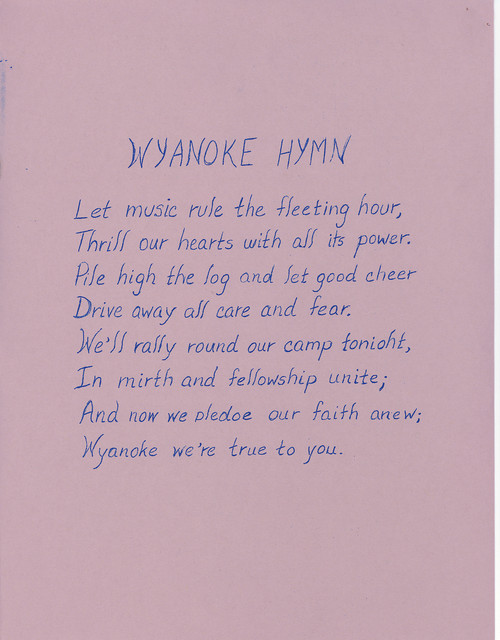 WYANOKE HYMN
Let music rule the fleeting hour,
Thrill our hearts with all its power.
Pile high the log and let good cheer
Drive away all care and fear.
We'll rally round our camp tonight,
In mirth and fellowship unite;
And now we pledge our faith anew;
Wyanoke we're true to you.